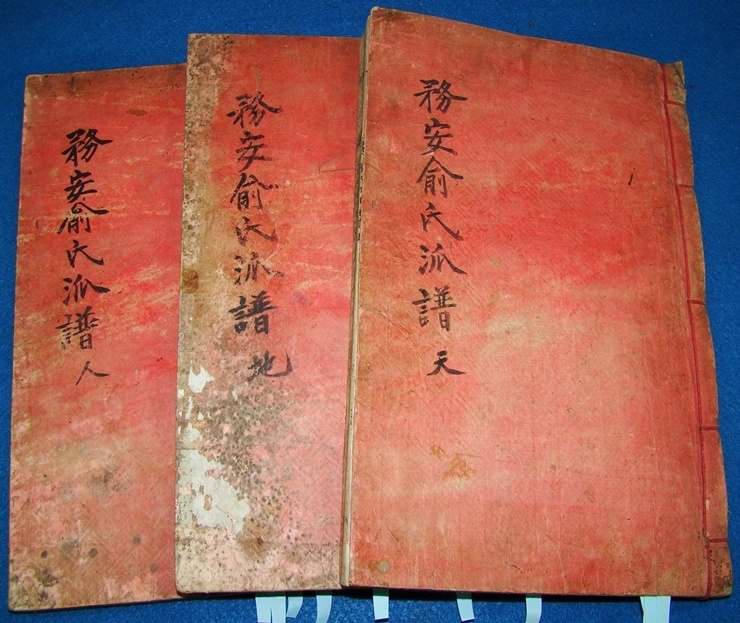 務安俞氏派譜 天
務安俞氏派譜 地
務安俞氏派譜 人